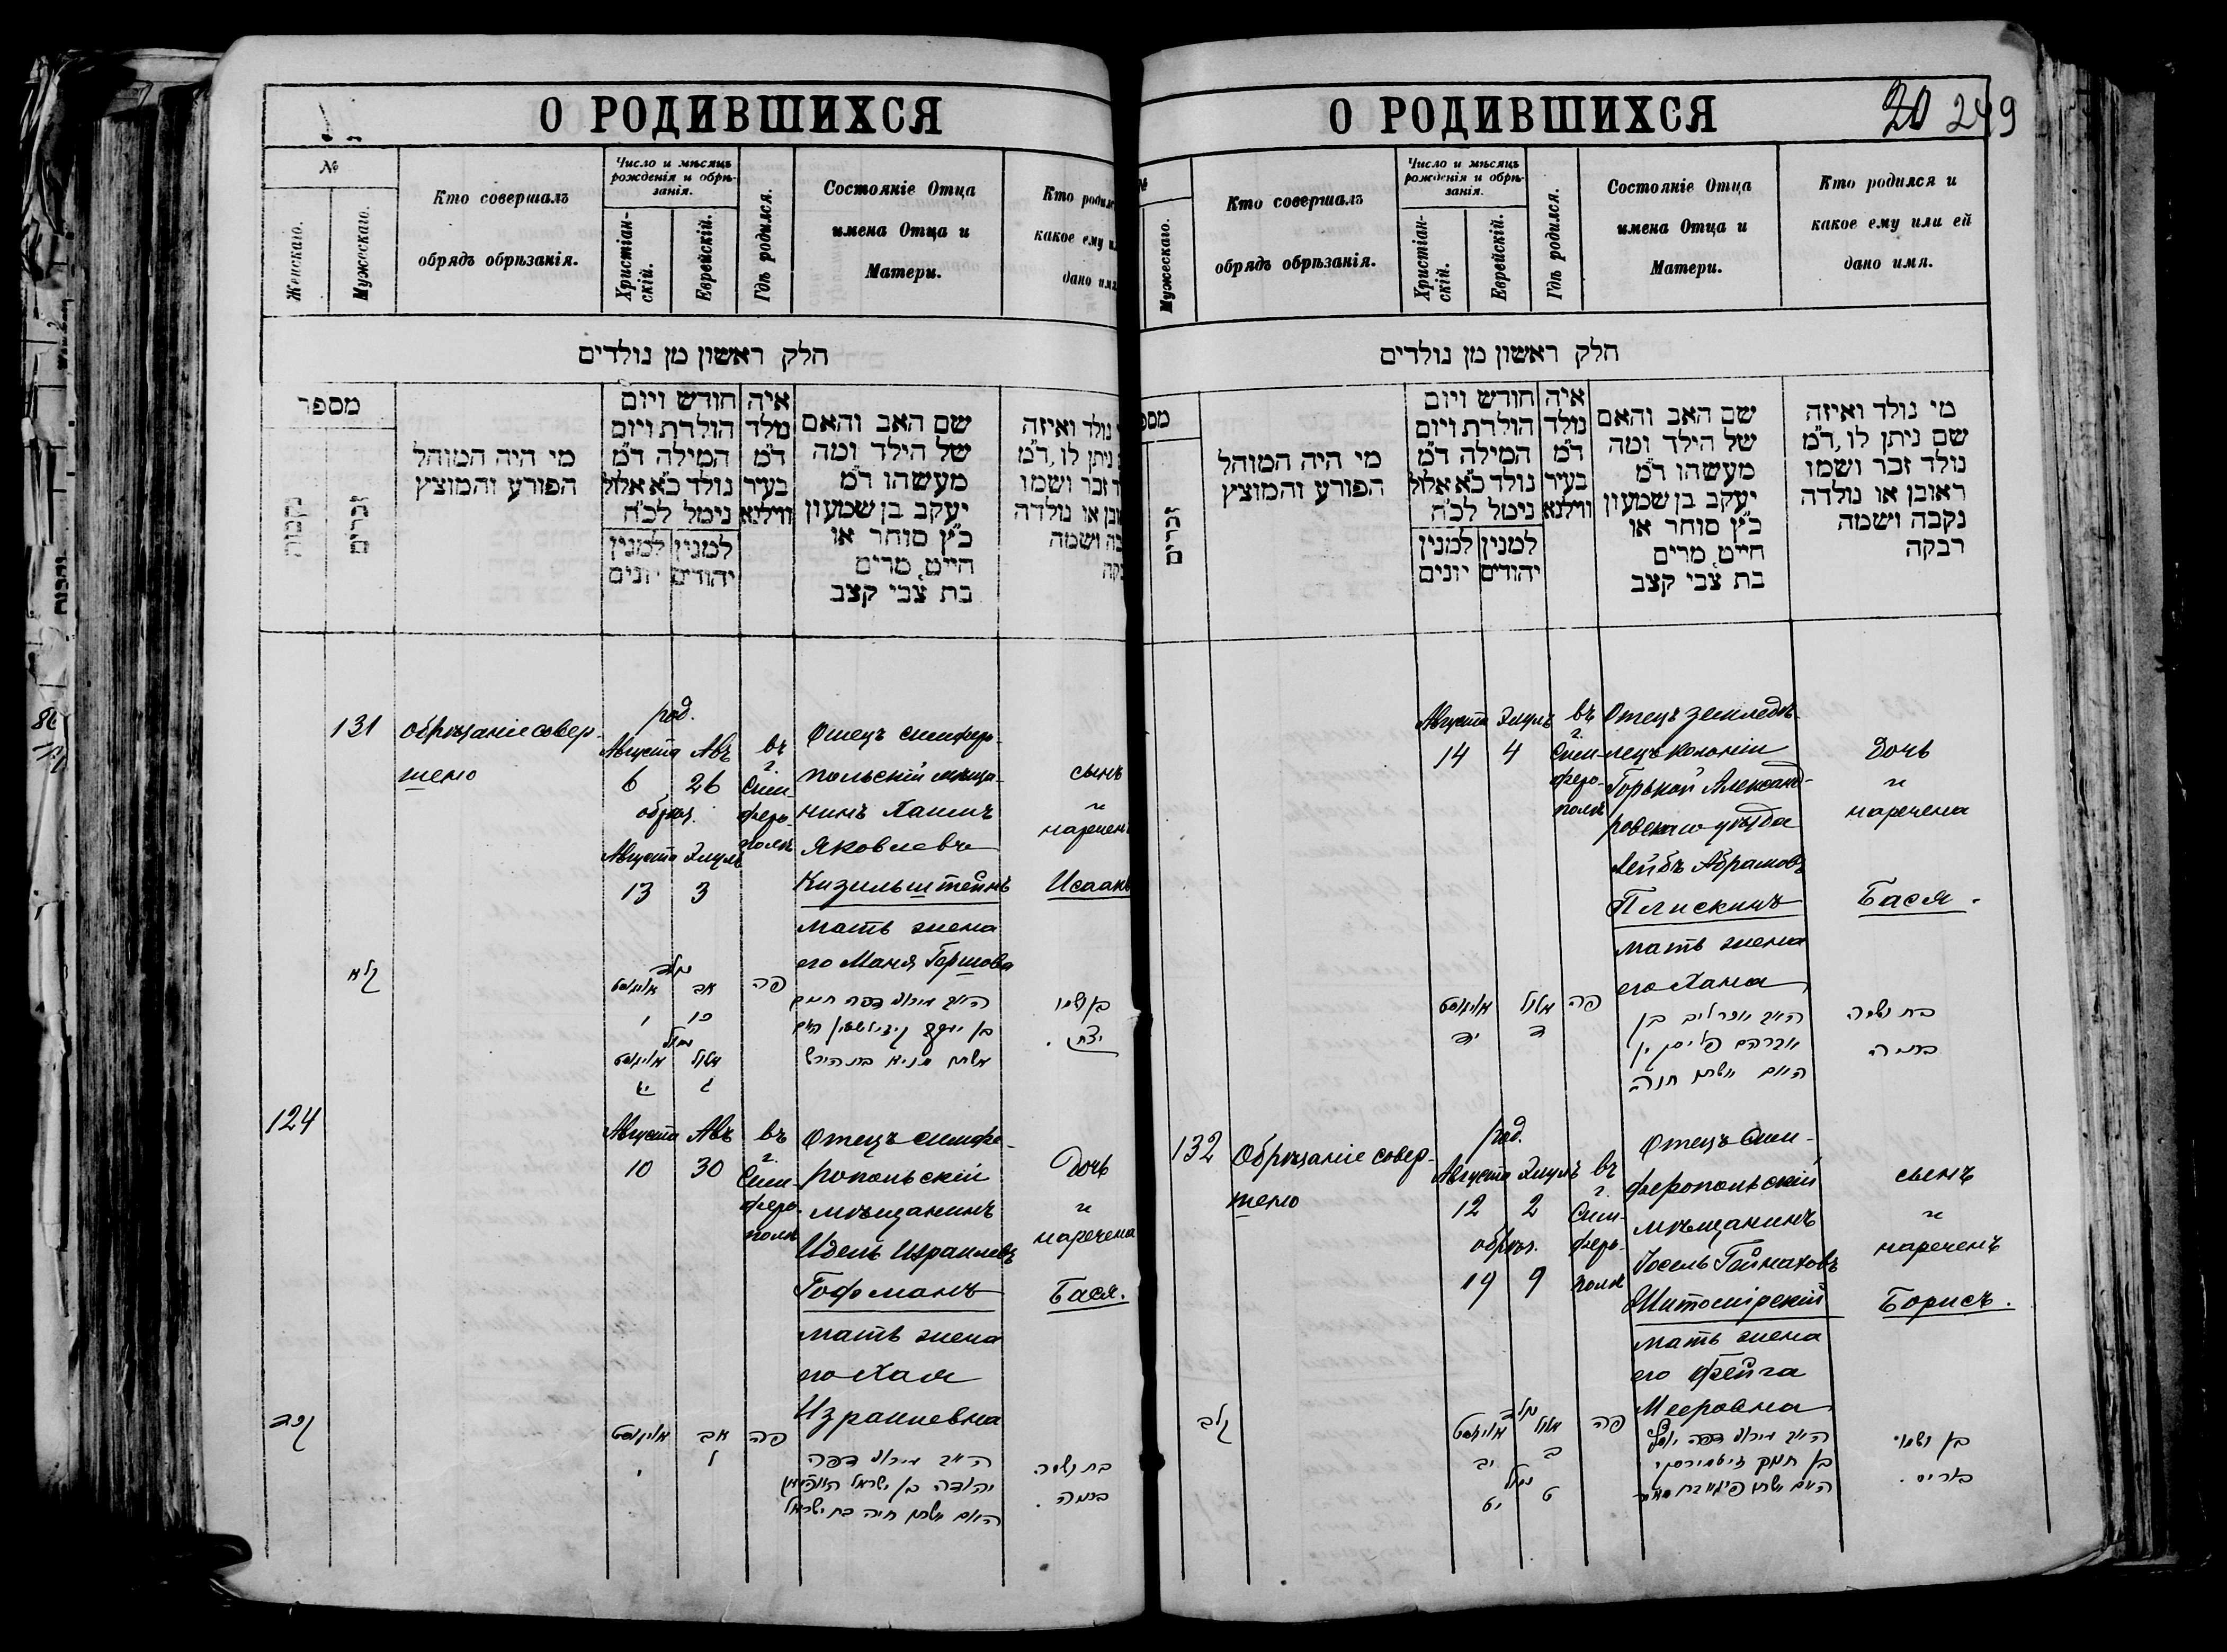 О РОДИВШИХСЯ
№
Женскаго.
Мужескаго.
Кто совершалъ
обрядъ обрѣзанія.
Число и мѣсяцъ
рожденія и обрѣ-
занія.
Христіан-
скій.
Еврейскій.
Гдѣ родился.
Состояніе Отца
имена Отца и
Матери.
Кто родился
какое ему и
дано имя
חלק ראשון מן נולדים
מספר
נקבות
זכרים
מי היה המוהל
הפורע והמוצץ
חודש ויום
הולדת ויום
המילה ד״מ
נולד כ״א אלול
נימל לכ״ח
למנין
יהודים
למנין
יונים
איה
נולד
ד״מ
בעיר
ווילנא
שם האב והאם
של הילד ומה
מעשהו ד״מ
יעקב בן שמעון
כ״ץ סוחר או
חייט, מרים
בת צבי קצב
נולד ואיזה
ניתן לו, ד״מ
זכר ושמו
או נולדה
ושמה
131
обрѣзаніе совер-
шено
род.
Августа Авъ
6 26
обрѣз.
Августа Элулъ
13 3
въ
г.
Сим-
феро-
полѣ
Отецъ симферо-
польскій мѣща-
нинъ Хаимъ
Яковлевъ
Кизильштейнъ
мать жена
его Маня Гершова
сынъ
и
нареченъ
Исаакъ
קלא
נולד
אויגוסט אב
ו כו
נימול
אויגוסט אלול
יג ג
פה
בן ושמו
יצחק.
124
Августа Авъ
10 30
въ
г.
Сим-
феро-
полѣ
Отецъ симфе-
ропольскій
мѣщанинъ
Идель Израилевъ
Гофманъ
мать жена
его Хая
Израилевна
Дочь
и
наречена
Бася.
קכד
אויגוסט אב
י ל
פה
יהודה בן ישראל האפמאן
האם אשתו חיה בת ישראל
בת ושמה
בתיה.
О РОДИВШИХСЯ
20 249
Мужескаго.
Кто совершалъ
обрядъ обрѣзанія.
Число и мѣсяцъ
рожденія и обрѣ-
занія.
Христіан-
скій.
Еврейскій.
Гдѣ родился.
Состояніе Отца
имена Отца и
Матери.
Кто родился и
какое ему или ей
дано имя.
חלק ראשון מן נולדים
זכרים
מי היה המוהל
הפורע והמוצץ
חודש ויום
הולדת ויום
המילה ד״מ
נולד כ״א אלול
נימל לכ״ח
למנין
יהודים
למנין
יונים
איה
נולד
ד״מ
בעיר
ווילנא
שם האב והאם
של הילד ומה
מעשהו ד״מ
יעקב בן שמעון
כ״ץ סוחר או
חייט, מרים
בת צבי קצב
מי נולד ואיזה
שם ניתן לו, ד״מ
נולד זכר ושמו
ראובן או נולדה
נקבה ושמה
רבקה
Августа Элулъ
14 4
въ
г.
Сим-
феро-
полѣ
Отецъ земледѣ-
лецъ колоніи
Горькой Александ-
ровскаго уѣзда
Лейбъ Абрамовъ
Плискинъ
мать жена
его Хана
Дочь
и
наречена
Бася.
אויגוסט אלול
יד ד
פה
האב אריליב בן
אברהם פליסקין
האם אשתו חנה
בת ושמה
בתיה
132
Обрѣзаніе совер-
шено
род.
Августа Элулъ
12 2
обрѣз.
19 9
въ
г.
Сим-
феро-
полѣ
Отецъ Сим-
феропольскій
мѣщанинъ
Іосель Гейнаховъ
Житомірскій
мать жена
его Фейга
Мееровна
сынъ
и
нареченъ
Борисъ.
קלב
נולד
אויגוסט אלול
יב ב
נימול
יט ט
פה
בן ושמו
בוריס.